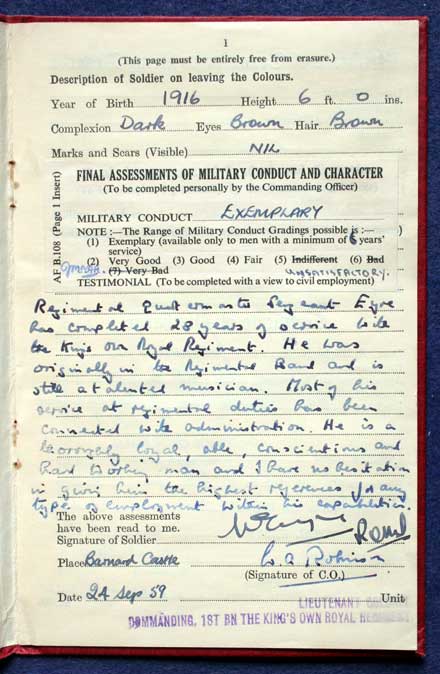 1
(This page must be entirely free from erasure.)
Description of Soldier on leaving the Colours.
Year of Birth 1916 Height 6 ft. 0 ins.
Complexion Dark Eyes Brown Hair Brown
Marks and Scars (Visible) NIL
AF B.108 (Page 1 Insert)
FINAL ASSESSMENTS OF MILITARY CONDUCT AND CHARACTER
(To be completed personally by the Commanding Officer)
MILITARY CONDUCT EXEMPLARY
NOTE :—The Range of Military Conduct Gradings possible is :— )
(1) Exemplary (available only to men with a minimum of 6 years'
service)
(2) Very Good (3) Good (4) Fair (5) Indifferent (6) Bad
(7) Very Bad UNSATISFACTORY.
TESTIMONIAL (To be completed with a view to civil employment)
Regimental Quartermaster Sergeant Eyre
has completed 28 years of service with
the Kings Own Royal Regiment. He was
originally in the Regimental Band and is
still a talented musician. Most of his
service at regimental duties has been
connected with administration. He is a
thoroughly loyal, able, conscientious and
hard working man and I have no hesitation
in giving him the highest references for any
type of employment within his capabilities.
The above assessments
have been read to me.
Signature of Soldier
Place Barnard Castle
(Signature of C.O.)
Date 24 Sep 59 Unit
LIEUTENANT
COMMANDING, 1ST BN THE KING'S OWN ROYAL REGIMENT